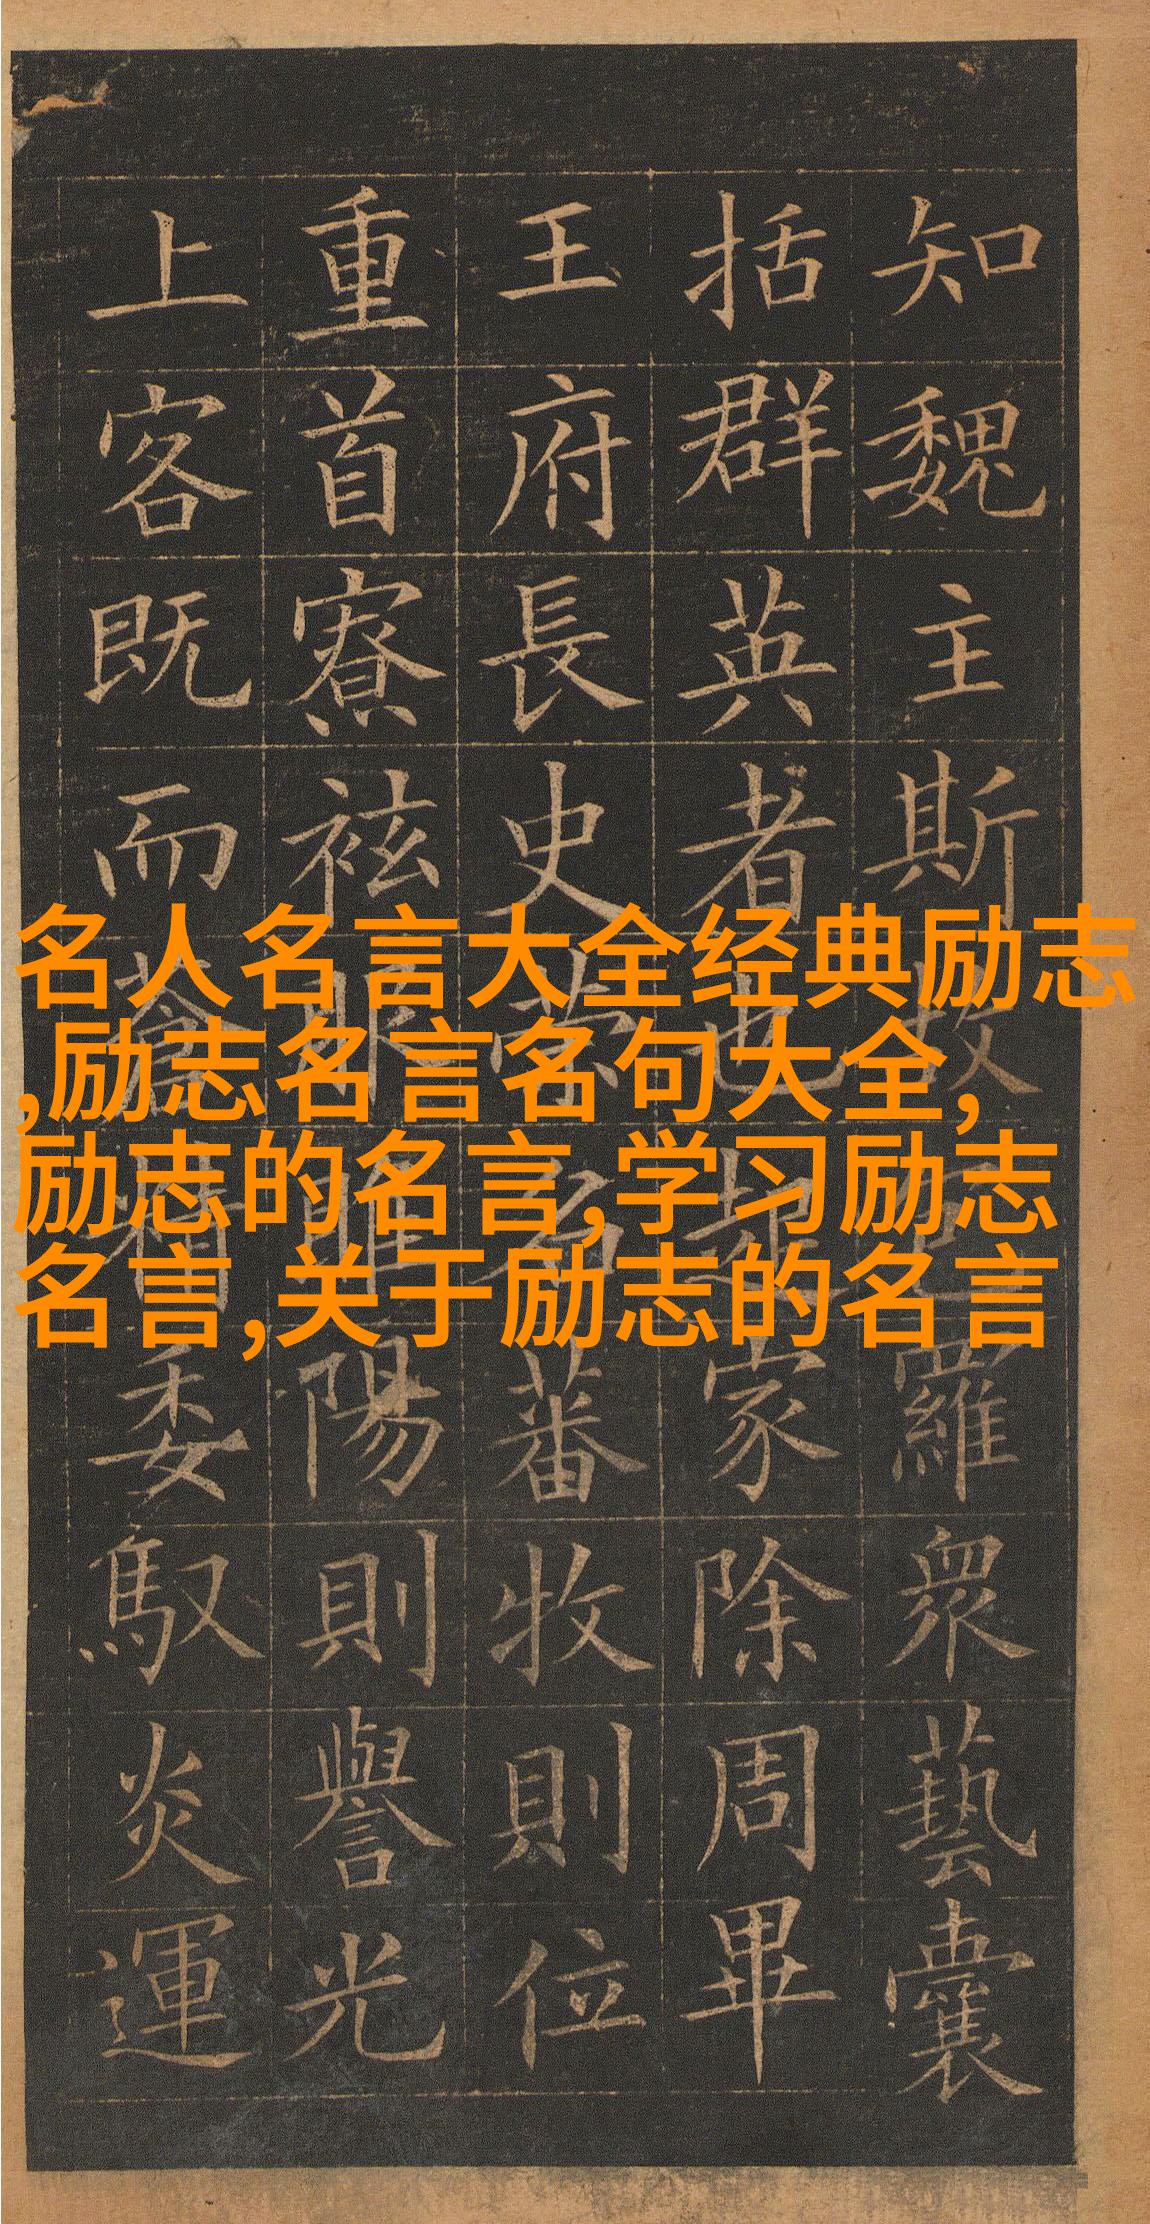 知魏主斯故包羅眾藝囊
括群英者也是家除周畢
王府長史名蕃牧則位
重首寮袨服睢陽則譽光
上客既而蒼精委馭炎運
名人名言大全经典励志
,励志名言名句大全,
励志的名言,学习励志
名言,关于励志的名言